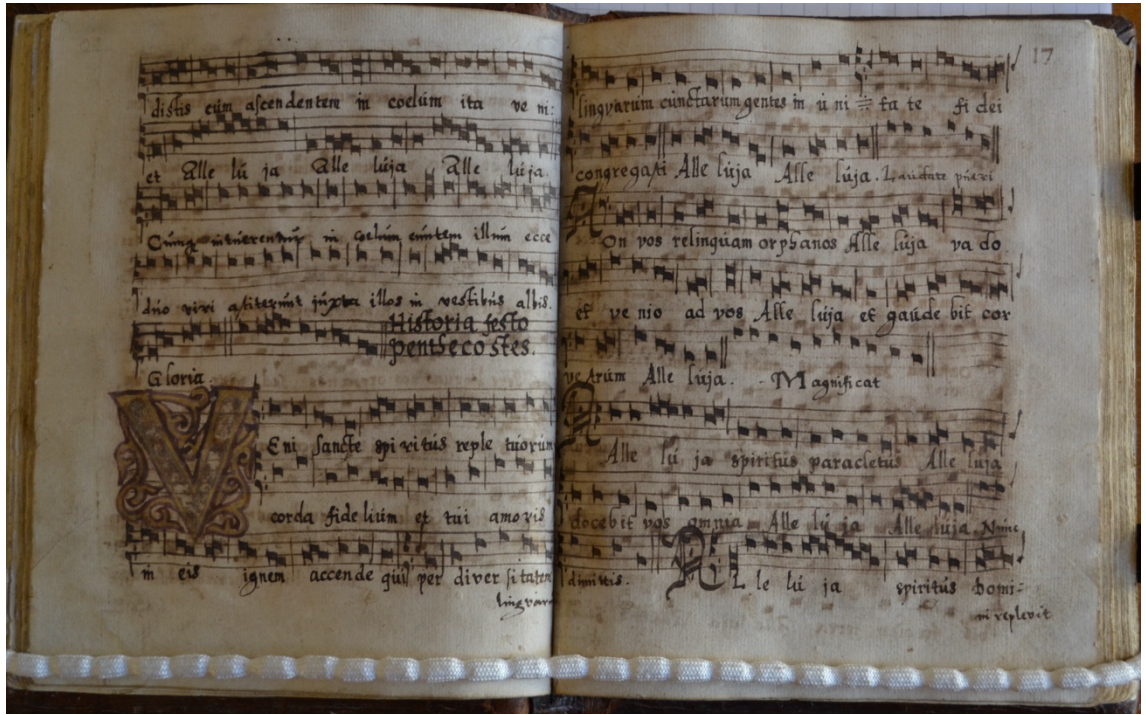 distis eum ascendentem in coelum ita ve ni:
et Alle lú ja Alle lúja Alle lúja.
Cumq intuerentur in coelum euntem illum ecce
duo viri astiterunt juxta illos in vestibús albis.
Historia festo
penthecostes.
Gloria.
VEni sancte spiritús reple túorum
corda fideliúm et túi amoris
in eis ignem accende qúi per diversitatem
lingvarū
17
lingvarum cúnctarum gentes in úni = ta te fidei
congregasti Alle lúja Alle lúja. Laudate púeri
NOn vos relinqúam orphanos Alle lúja vado
et venio ad vos Alle lúja et gaúdebit cor
vestrúm Alle lúja. Magnificat
Alle lú ja spiritús paracletús Alle lúja
docebit vos omnia Alle lú ja Alle lúja. Nunc
dimittis. ALle lú ja spiritús Domi-
ni replevit